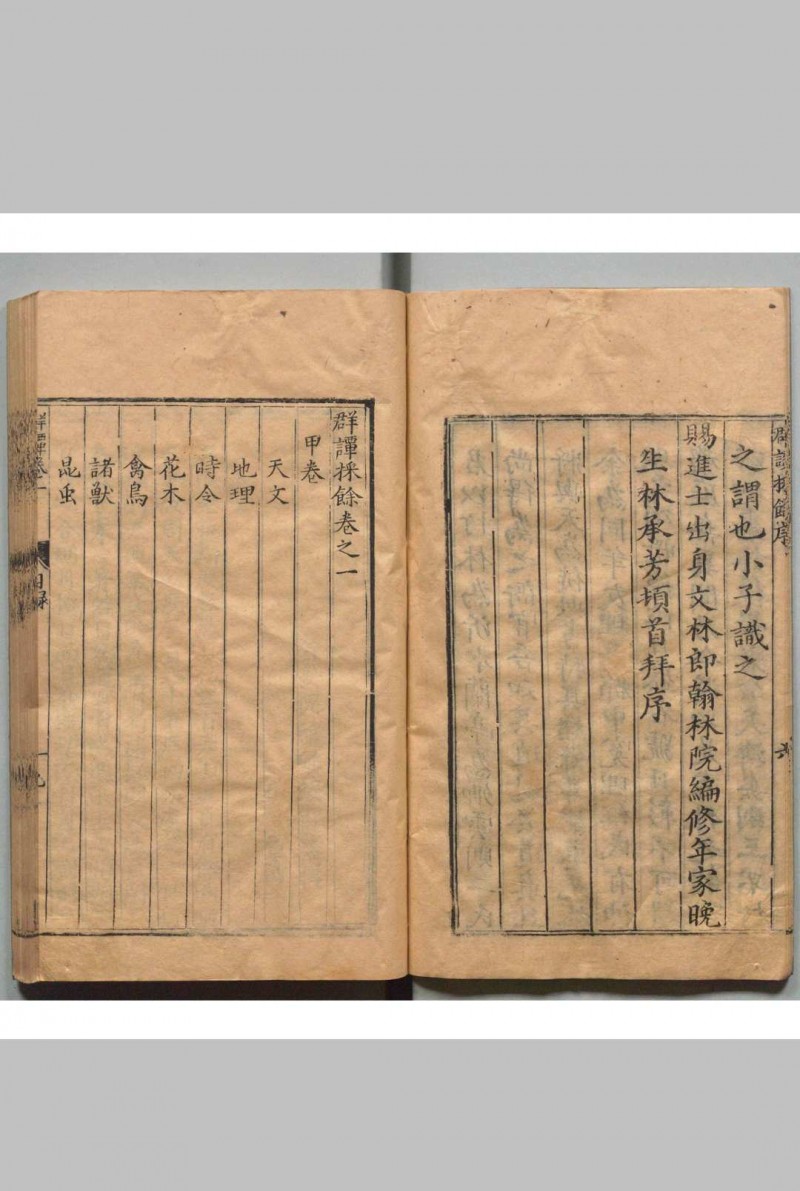 群譚採餘序
之謂也小子識之
賜進士出身文林郎翰林院編修年家晚
生林承芳頓首拜序
群譚採餘卷之一
甲卷
天文
地理
時令
花木
禽鳥
諸獸
昆虫
卷一
目錄